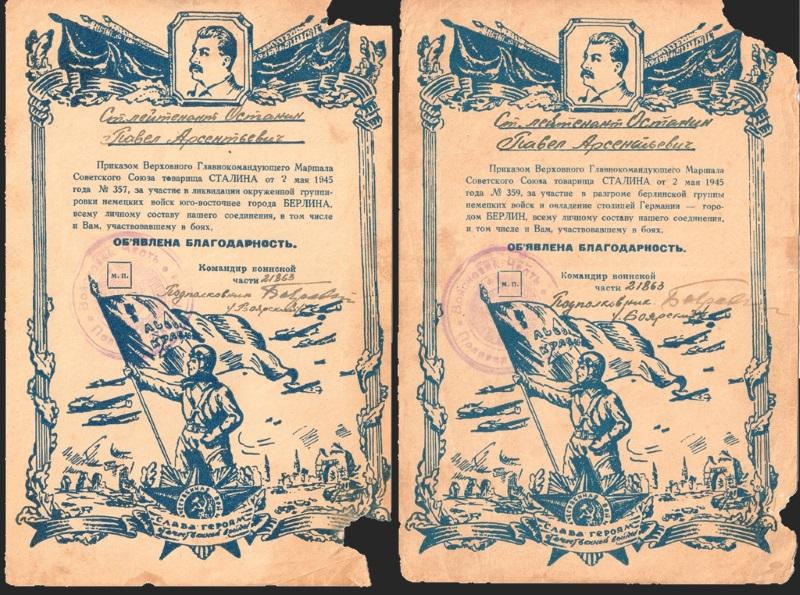 Ст. лейтенант Останин
Павел Арсентьевич
Приказом Верховного Главнокомандующего Маршала
Советского Союза товарища СТАЛИНА от 2 мая 1945
года № 357, за участие в ликвидации окруженной группи-
ровки немецких войск юго-восточнее города БЕРЛИНА,
всему личному составу нашего соединения, в том числе
и Вам, участвовавшему в боях,
ОБ'ЯВЛЕНА БЛАГОДАРНОСТЬ.
Командир воинской
части 21863
м. п.
Подполковник
/Боярский/
СЛАВА ГЕРОЯМ
Отечественной войны
Ст. лейтенант Останин
Павел Арсентьевич
Приказом Верховного Главнокомандующего Маршала
Советского Союза товарища СТАЛИНА от 2 мая 1945
года № 359, за участие в разгроме берлинской группы
немецких войск и овладение столицей Германии — горо-
дом БЕРЛИН, всему личному составу нашего соединения,
и том числе и Вам, участвовавшему в боях.
ОБ'ЯВЛЕНА БЛАГОДАРНОСТЬ.
Командир воинской
части 21863
м. п.
Подполковник
/Боярский/
СЛАВА ГЕРОЯМ
Отечественной войны